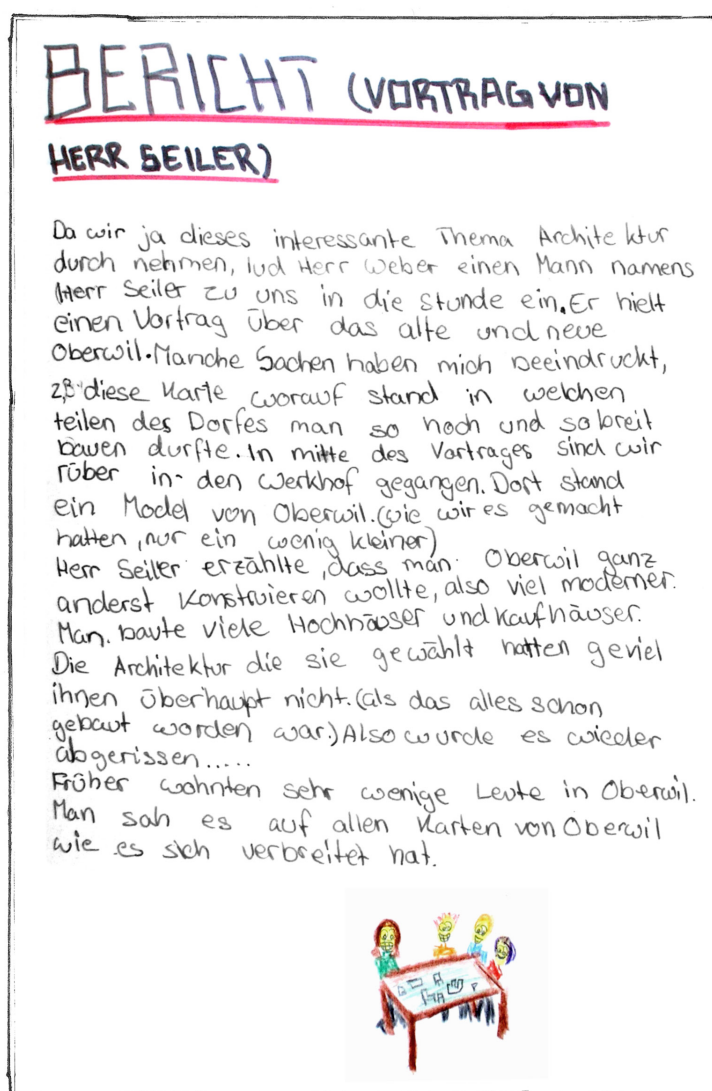 BERICHT (VORTRAG VON
HERR SEILER)
Da wir ja dieses interessante Thema Architektur
durch nehmen, lud Herr Weber einen Mann namens
Herr Seiler zu uns in die Stunde ein. Er hielt
einen Vortrag über das alte und neue
Oberwil. Manche Sachen haben mich beeindruckt,
z,B diese Karte worauf stand in welchen
teilen des Dorfes man so hoch und so breit
bauen durfte. In mitte des Vortrages sind wir
rüber in den Werkhof gegangen. Dort stand
ein Model von Oberwil. (wie wir es gemacht
hatten, nur ein wenig kleiner)
Herr Seiler erzählte, dass man Oberwil ganz
anderst Konstruieren wollte, also viel moderner.
Man. baute viele Hochhäuser und Kaufhäuser.
Die Architektur die sie gewählt hatten geviel
ihnen überhaupt nicht. (als das alles schon
gebaut worden war.) Also wurde es wieder
abgerissen.....
Früher wohnten sehr wenige Leute in Oberwil.
Man sah es auf allen Karten von Oberwil
wie es sich verbreitet hat.